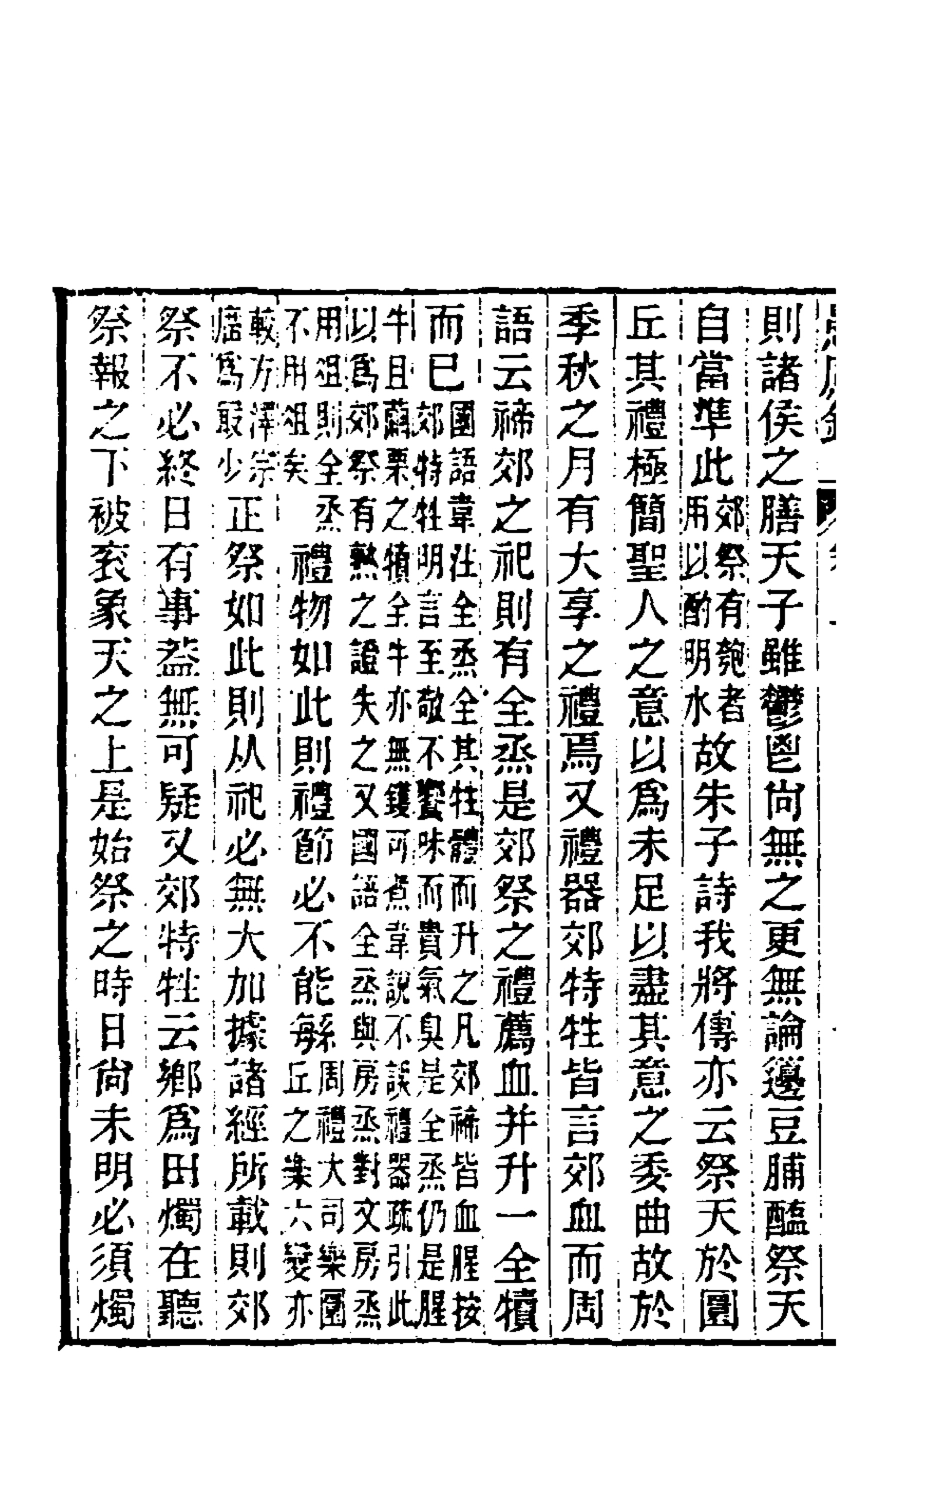 則諸侯之膳天子雖鬱鬯尙無之更無論籩豆脯醢祭天
自當準此郊祭有匏者用以酌明水故朱子詩我將傳亦云祭天於圜
丘其禮極簡聖人之意以爲未足以盡其意之委曲故於
季秋之月有大享之禮焉又禮器郊特牲皆言郊血而周
語云禘郊之祀則有全烝是郊祭之禮薦血并升一全犢
而已國語韋注全烝全其牲體而升之凡郊禘皆血腥按郊特牲明言至敬不饗味而貴氣臭是全烝仍是腥
牛且繭栗之犢全牛亦無鑊可煮韋說不誤禮器疏引此以爲郊祭有熟之證失之又國語全烝與房烝對文房烝
用俎則全烝不用俎矣禮物如此則禮節必不能緐周禮大司樂圜丘之樂六變亦
較方澤宗廟爲最少正祭如此則从祀必無大加據諸經所載則郊
祭不必終日有事葢無可疑又郊特牲云鄉爲田燭在聽
祭報之下被衮象天之上是始祭之時日尙未明必須燭